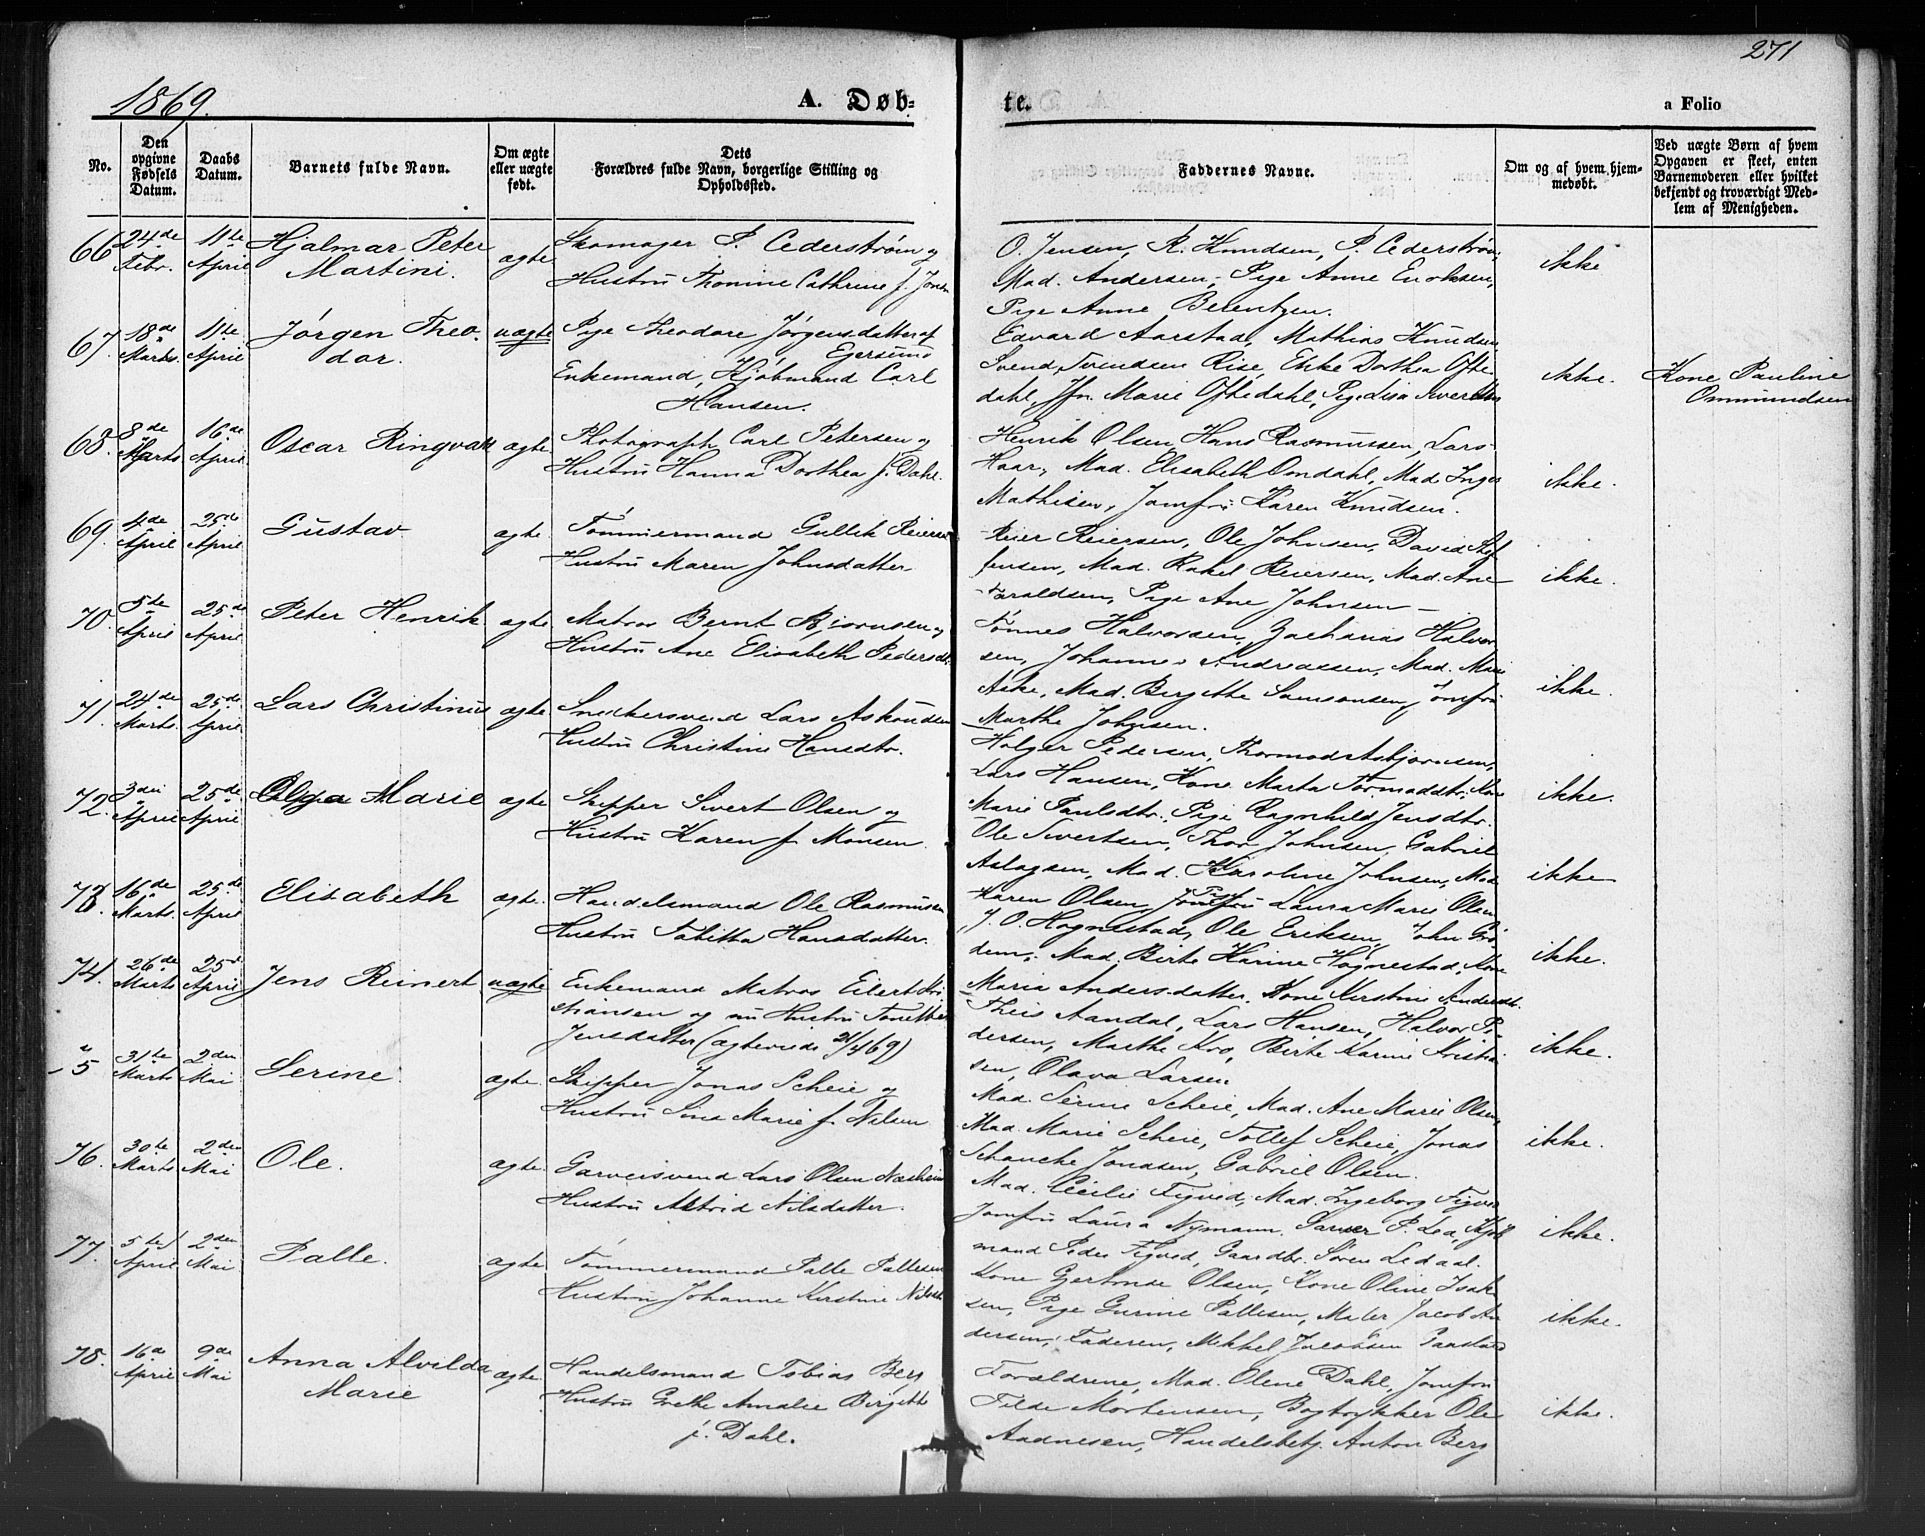 271
1869.
A. Døb-
te.
a Folio
No.
Den opgivne Fødsels Datum.
Daabs Datum.
Barnets fulde Navn.
Om ægte eller uægte født.
Dets Forældres fulde Navn, borgerlige Stilling og Opholdssted.
Faddernes Navne.
Om og af hvem hjemmedøbt.
Ved uægte Børn af hvem Opgaven er skeet, enten Barnemoderen eller hvilket bekjendt og troværdigt Medlem af Menigheden.
66 24de Febr. 11te April Hjalmar Peter Martini. ægte
Skomager P. Cederstrøm og
Hustru Thomine Cathrine f. Jensen
O. Jensen, R. Knudsen, P. Cederstrøm,
Mad. Andersen, Pige Anne Enoksen,
Pige Anne Berentzen.
ikke
67. 18de Marts. 11te April Jörgen Theodor. uægte
Pige Theodore Jörgensdatter af
Egersund
Enkemand, Kjöbmand Carl
Hansen.
Edvard Aarstad, Mathias Knudsen,
Svend Svendsen Rise, Enke Dorthea Ofte
dahl, Jfr. Marie Oftedahl, Pige Lisa Sivertsen
ikke.
Kone Pauline
Ommundsen
68. 8de Marts 16de April Oscar Ringvald ægte
Photograph Carl Petersen og
Hustru Hanna Dorthea f. Dahl.
Henrik Olsen, Hans Rasmussen, Lars
Haar, Mad. Elisabeth Omdahl, Mad. Inger
Mathisen, Jomfru Karen Knudsen.
ikke.
69. 4de April 25de April Gustav ægte
Tömmermand Gullik Reiersen
Hustru Maren Johnsdatter
Reier Reiersen, Ole Johnsen, David Stef
fensen, Mad. Rakel Reiersen, Mad. Ane
Taraldsen, Pige Ane Johnsen
ikke.
70. 5te April 25de April Peter Henrik ægte
Matros Bernt Bjørnsen og
Hustru Ane Elisabeth Pedersdt.
Tönnes Halvorsen, Zacharias Halvor
sen, Johannes Andreassen, Mad. Marie
Aske, Mad. Bergitte Samsonsen, Jomfru
Marthe Johnsen.
ikke.
71. 24de Marts. 25de April Lars Christinus ægte
Snedkersvend Lars Asknudsen
Hustru Christine Hansdtr.
Holger Pedersen, Thormod Asbjørnsen,
Lars Hansen, Kone Marta Tormodsdtr., Kone
Marie Paulsdtr., Pige Ragnhild Jensdtr.
ikke.
72. 3die April 25de April Olga Marie ægte
Skipper Sivert Olsen og
Hustru Karen f. Monsen.
Ole Sivertsen, Thor Johnsen, Gabriel
Aslagsen, Mad. Karoline Johnsen, Mad.
Karen Olsen, Pige Laura Marie Olsen
ikke
73. 16de Marts. 25de April Elisabeth ægte.
Handelsmand Ole Rasmussen
Hustru Tabitta Hansdatter.
J. O. Hognestad, Ole Eriksen, John Gro
dem, Mad. Birte Karine Hognestad, Kone
Maria Andersdatter, Kone Kirstine Andersdt.
ikke.
74. 26de Marts 25de April Jens Reinert uægte
Enkemand Matros Eilert Kri
stiansen og nu Hustru Tonette
Jensdatter (ægteviede 21/4 69)
Theis Aandal, Lars Hansen, Halvor Pe
dersen, Marthe Kro, Birte Karine Kristian
sen, Olava Larsen.
ikke.
5 31te Marts 2den Mai Serine. ægte.
Skipper Jonas Scheie og
Hustru Sina Marie f. Nilsen
Mad. Serine Scheie, Mad. Ane Marie Olsen,
Mad. Marie Scheie, Tollef Scheie, Jonas
Schancke Jonassen, Gabriel Olsen.
ikke.
76. 30te Marts 2den Mai Ole. ægte.
Garversvend Lars Olsen Næsheim
Hustru Astrid Nilsdatter.
Mad. Cecilie Figved, Mad. Ingeborg Figved
Jomfru Laura Nymann, P. Led, Kjöb
mand Peder Figved, Gaardbr. Søren Ledaal.
ikke.
77. 5te April 2den Mai Palle. ægte
Tömmermand Palle Pallesen
Hustru Johanne Kirstine
Kone Gertrude Olsen, Kone Oline Isak
sen, Pige Gurine Pallesen, Maler Jacob An
dersen, Faderen, Mikkel Jacobsen
ikke.
78. 16de April 9de Mai Anna Alvilda Marie ægte.
Handelsmand Tobias Berg
Hustru Grethe Amalie Birgitte
f. Dahl.
Forældrene, Mad. Olene Dahl, Jomfru
Tilde Mortensen, Bogtrykker Ole
Aadnesen, Handelsbetj. Anton Berg
ikke.